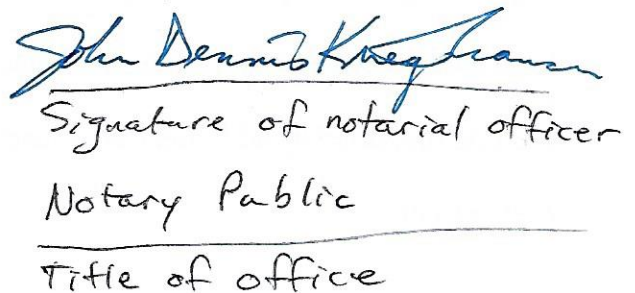 John Dennis
Signature of notarial officer
Notary Public
Title of office